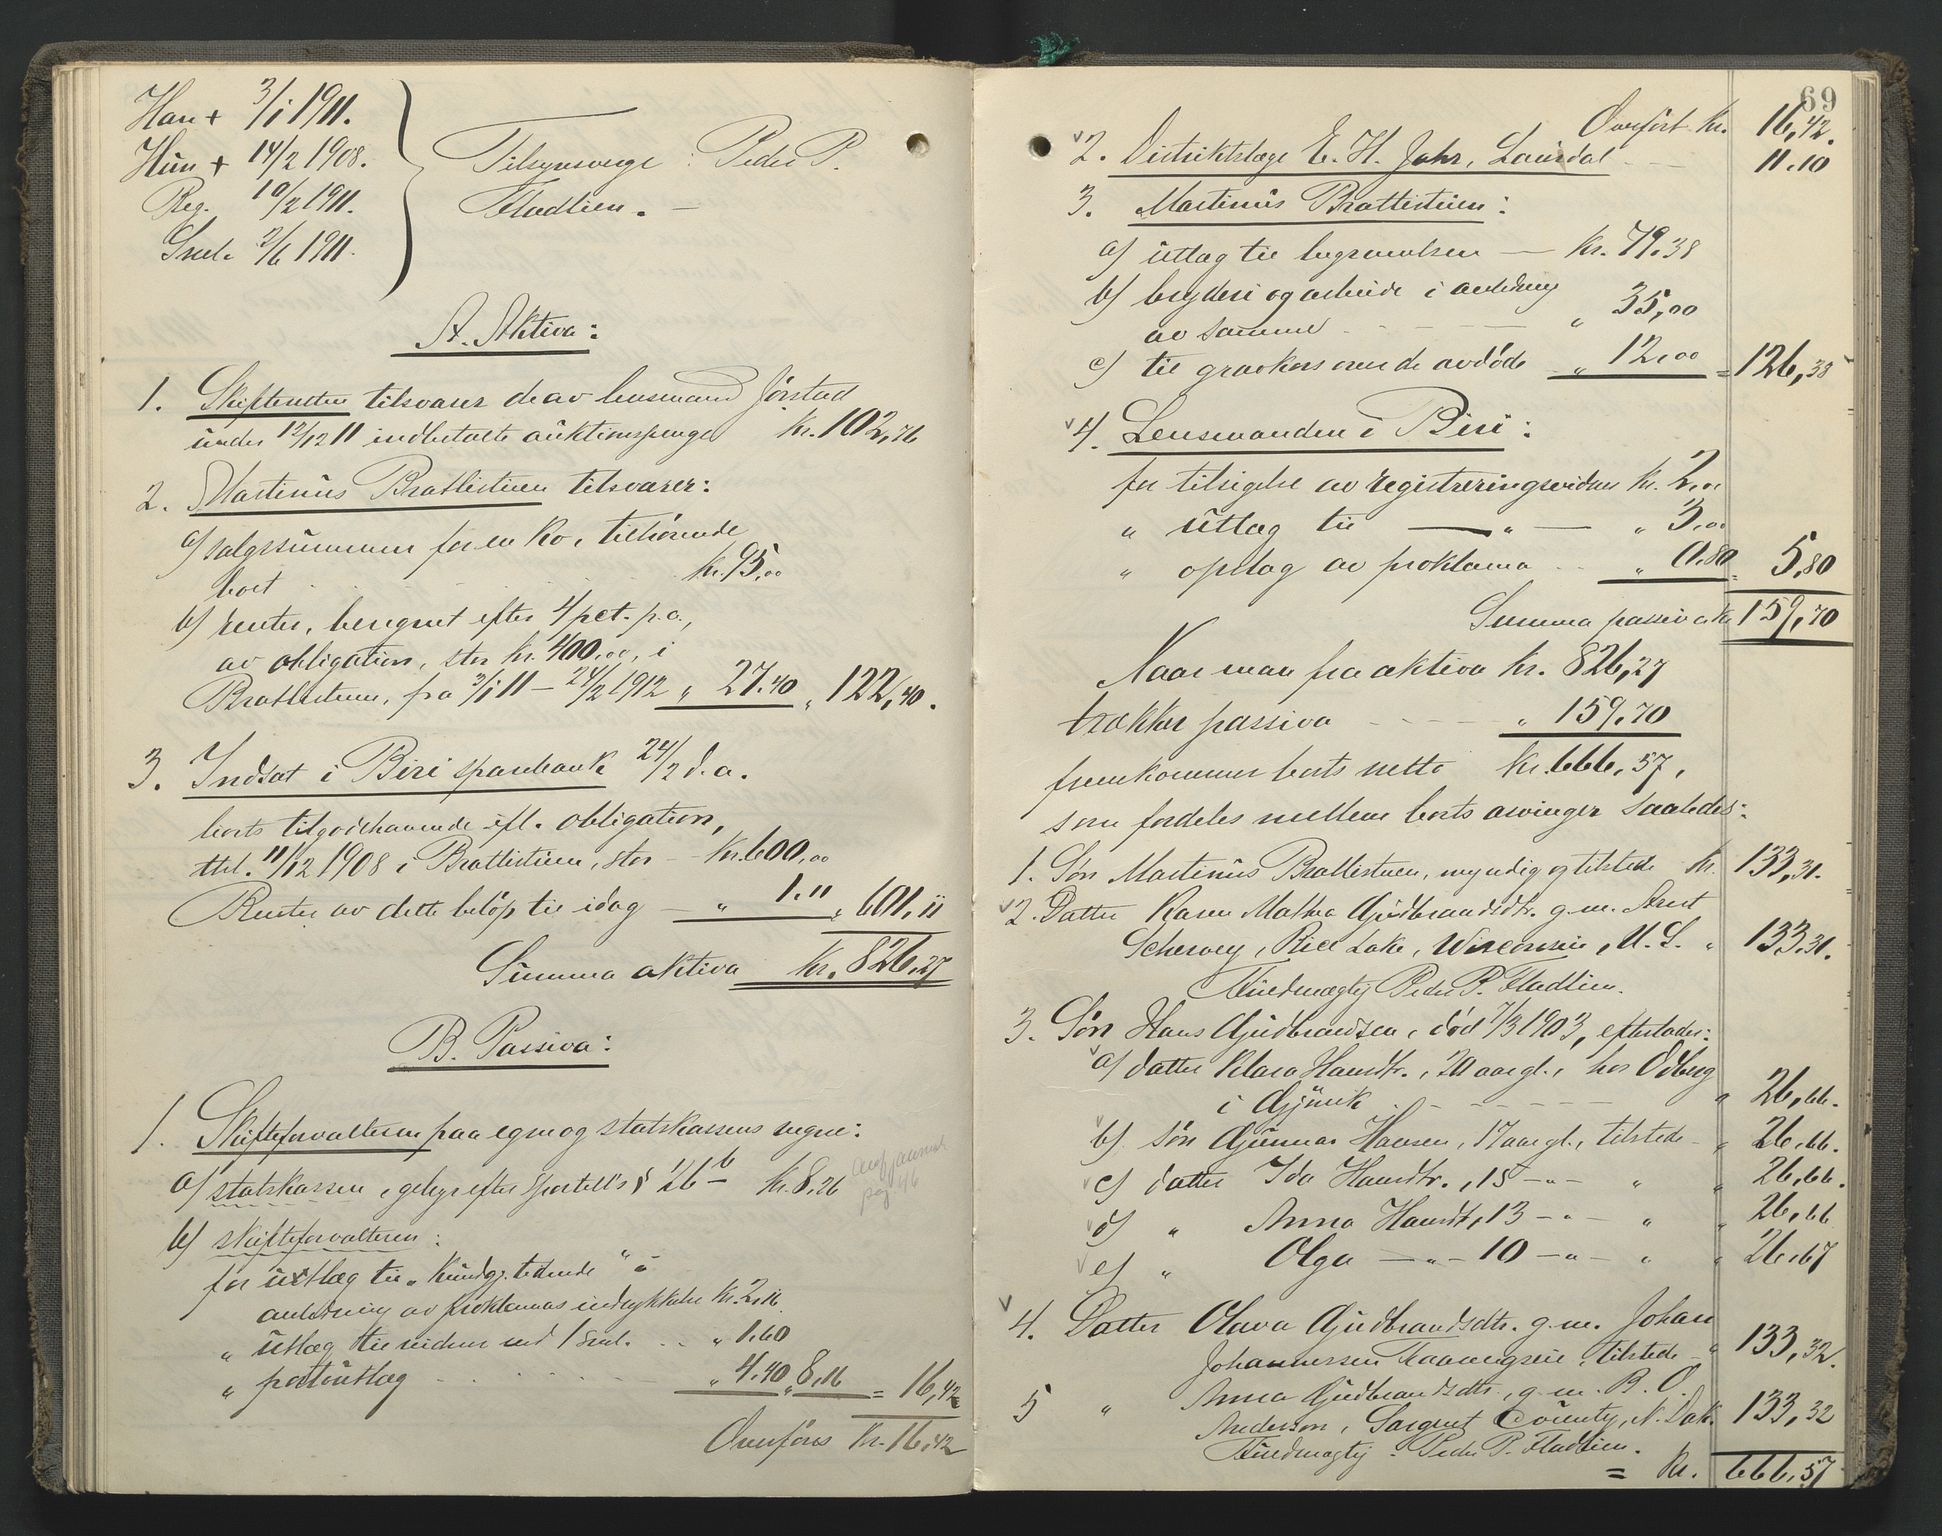 Han + 3/1 1911.
Hun + 14/2 1908.
Reg. 10/2 1911.
Snd. 2/6 1911.
Tilsynsverge: Peder P.
Fladlien. —
A. Aktiva:
1. Skifteretten tilsvarer de av lensmand Jørstad
under 12/12 11 indbetalte auktionspenge kr. 102,76
2. Martinius Bratlistuen tilsvarer:
a) salgssummen for en ko, tilhørende
boet kr. 95,00
b) renter, beregnet efter 4 pct. p.a.,
av obligation, stor kr. 400,00, i
Bratlistuen, fra 3/1 11 — 24/2 1912 " 27.40 " 122,40.
3. Indsat i Biri sparebank 24/2 d.a.
boets tilgodehavende ifl. obligation,
thl. 11/12 1908 i Bratlistuen, stor — kr. 600,00
Renter av dette beløp til idag — " 1.11 " 601,11
Summa aktiva kr. 826,27
B. Passiva:
1. Skifteforvalteren paa egne og statskassens vegne:
a) statskassen, gebyr efter sportell's § 126 b kr. 8,26
pag. 46
b) skifteforvalteren:
for utlæg til "Kundgj. tidende" i
anledning av proklamas indrykkelse kr. 2,16.
" utlæg til vidner ved 1 snl. . . " 1.60
" portoutlæg " 4.40 " 8,16 = 16,42
Overføres kr. 16,42
69
Overført kr. 16,42.
2. Distriktslæge E. H. Johr, Saursdal 11.10
3. Martinius Bratlistuen:
a) utlæg til begravelsen — kr. 79.38
b) bryderi og arbeide i anledning
av samme " 35,00
c) til gravkors over de avdøde " 12,00 = 126,38
4. Lensmanden i Biri:
for tilsigelse av registreringsvidner kr. 2,00
" utlæg til — " — " 3,00
" opslag av proklama " 0,80 = 5,80
Summa passiva kr. 159,70
Naar man fra aktiva kr. 826,27
trækker passiva " 159.70
fremkommer boets netto kr. 666,57,
som fordeles mellem boets arvinger saaledes:
1. Søn Martinius Bratlistuen, myndig og tilstede kr. 133,31.
2. Datter Karen Mathea Gudbrandsdtr. g.m. Arnt
Schervey, Rice Lake, Wisconsin, U.S. " 133,31.
Fuldmægtig Peder P. Fladlien.
3. Søn Hans Gudbrandsen, død 7/3 1903, efterlader:
a) datter Klara Hansdtr., 20 aar gl., hos Odberg
i Gjøvik " 26,66.
b) søn Gunnar Hansen, 17 aar gl., tilstede " 26,66.
c) datter Ida Hansdtr., 15 — " — " " 26,66.
d) " Anna Hansdt, 13 — " — " " 26,66
e) " Olga — " — 10 — " — " " 26,67
4. Datter Olava Gudbrandsdtr. g.m. Johan
Johannessen Kaavengseie, tilstede " 133,32.
5 " Anna Gudbrandsdtr., g.m. B. O.
Anderson, Sargent County, N. Dak. 133,32
Fuldmægtig: Peder P. Fladlien.
= kr. 666,57